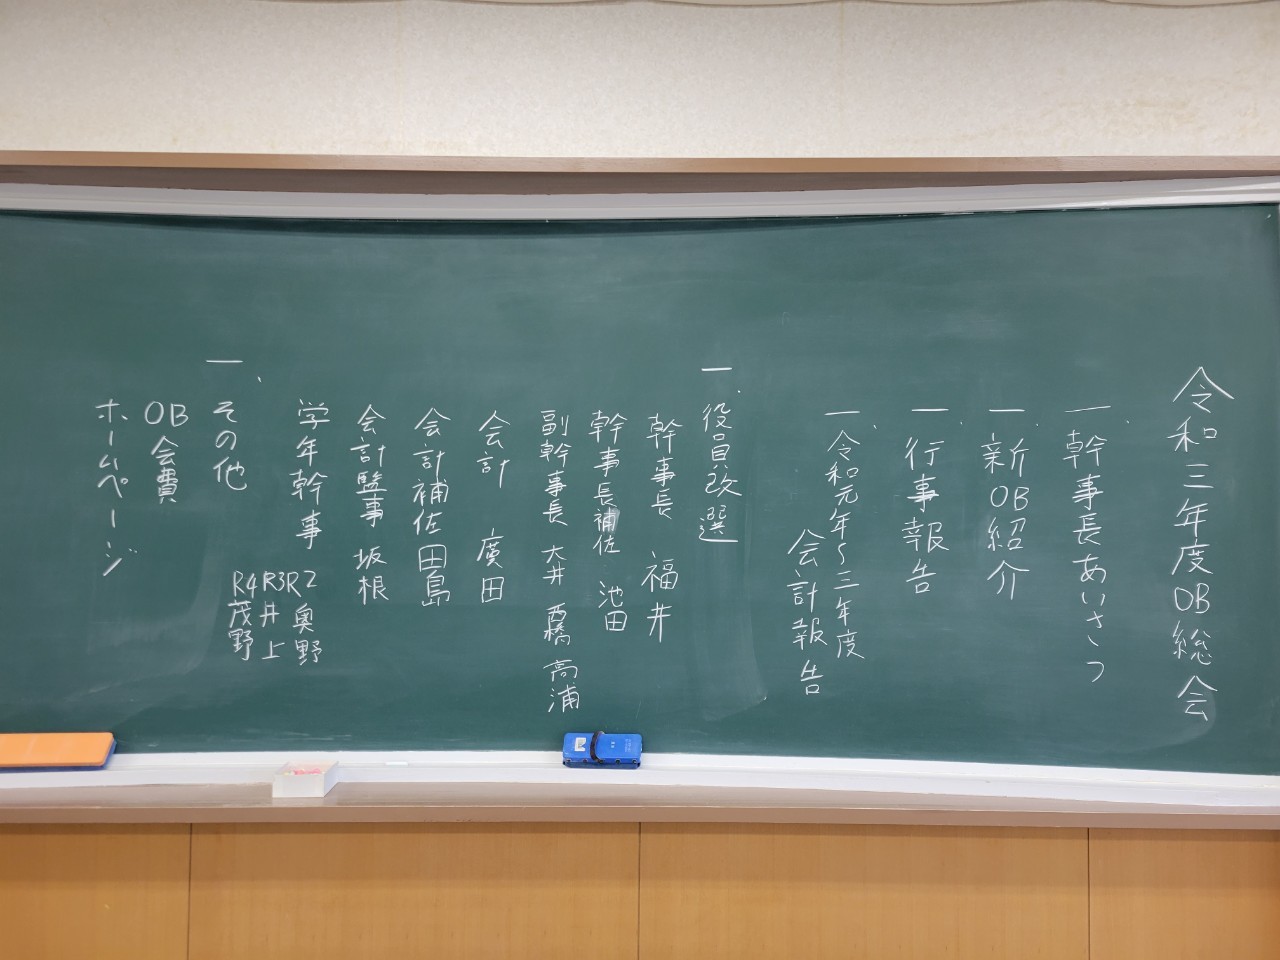 令和三年度OB総会
一、幹事長あいさつ
一、新OB紹介
一、行事報告
一、令和元年〜三年度
会計報告
一、役員改選
幹事長 福井
幹事長補佐 池田
副幹事長 大井 髙浦
会計 廣田
会計補佐 田島
会計監事 坂根
学年幹事 R2奥野
R3井上
R4茂野
一、その他
OB会費
ホームページ